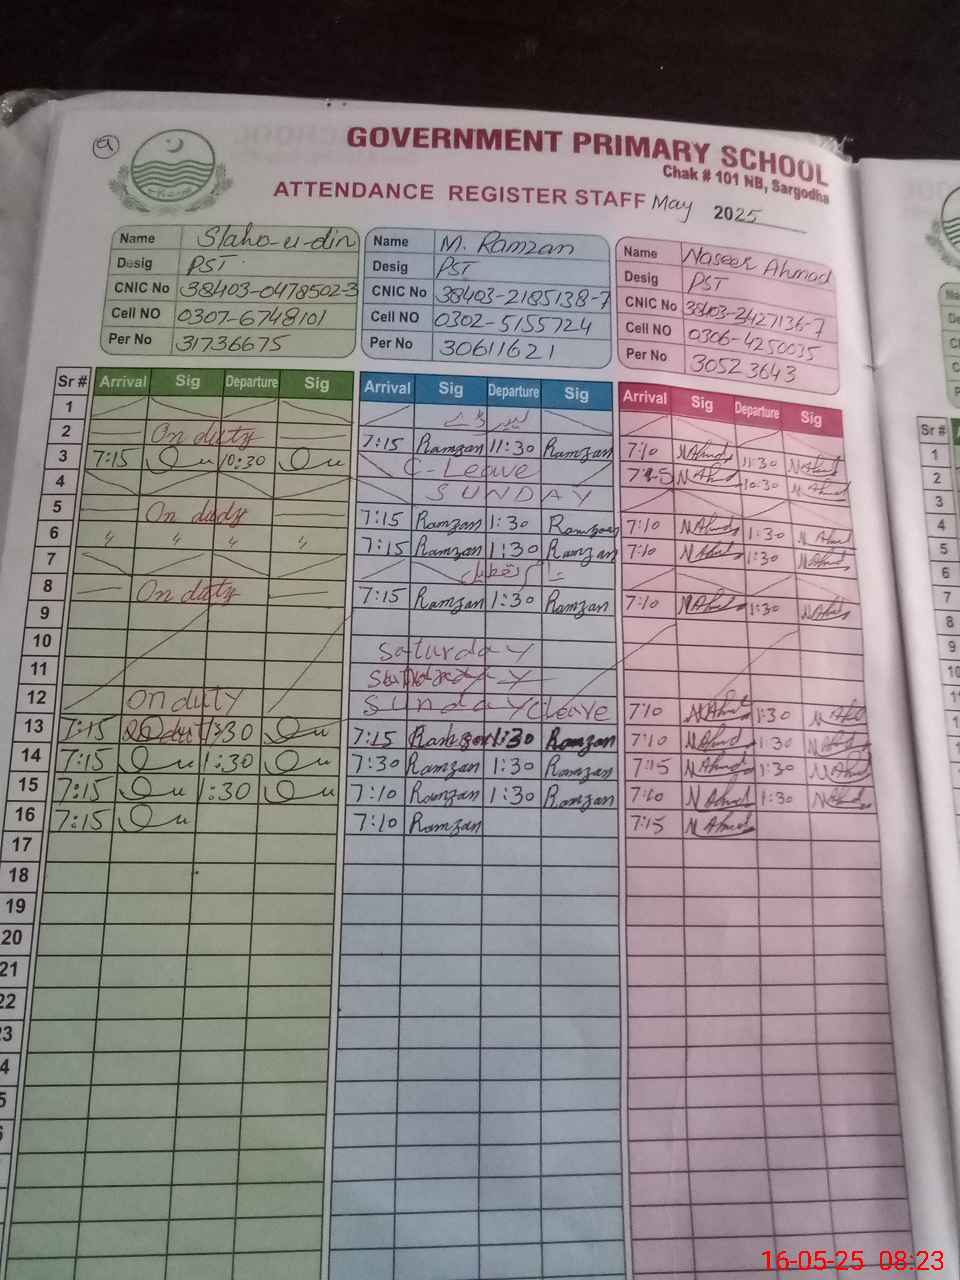 9
GOVERNMENT PRIMARY SCHOOL
Chak # 101 NB, Sargodha
ATTENDANCE REGISTER STAFF May 2025
Name Slaho-u-din Name M. Ramzan Name Naseer Ahmad
Desig PST Desig PST Desig PST
CNIC No 38403-0478502-3 CNIC No 38403-2185138-7 CNIC No 38403-2427136-7
Cell NO 0307-6748101 Cell NO 0302-5155724 Cell NO 0306-4250035
Per No 31736675 Per No 30611621 Per No 30523643
Sr # Arrival Sig Departure Sig Arrival Sig Departure Sig Arrival Sig Departure Sig
1
2 On duty 7:15 Ramzan 11:30 Ramzan 7:10 N Ahmd 11:30 N Ahmd
3 7:15 10:30 C-Leave N Ahmd 10:30 N Ahmd
4 SUNDAY
5 On duty 7:15 Ramzan 1:30 Ramzan 7:10 N Ahmd 1:30 N Ahmd
6 " " " " 7:15 Ramzan 1:30 Ramzan 7:10 N Ahmd 1:30 N Ahmd
7
8 On duty 7:15 Ramzan 1:30 Ramzan 7:10 N Ahmd 1:30 N Ahmd
9
10 Saturday
11
12 On duty Sunday C leave 7:10 N Ahmd 1:30 N Ahmd
13 7:15 1:30 7:15 Ramzan 1:30 Ramzan 7:10 N Ahmd 1:30 N Ahmd
14 7:15 1:30 7:30 Ramzan 1:30 Ramzan 7:15 N Ahmd 1:30 N Ahmd
15 7:15 1:30 7:10 Ramzan 1:30 Ramzan 7:10 N Ahmd 1:30 N Ahmd
16 7:15 7:10 Ramzan 7:15 N Ahmd
17
18
19
20
21
22
23
4
5
6
Sr #
1
2
3
4
5
6
7
8
9
10
16-05-25 08:23